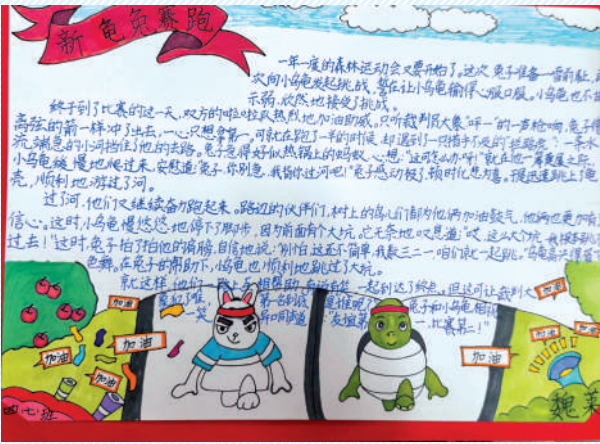 新龟兔赛跑
一年一度的森林运动会又要开始了。这次兔子准备一雪前耻,
次向小乌龟发起挑战,誓在让小乌龟输得心服口服。小乌龟也不甘
示弱,欣然地接受了挑战。
终于到了比赛的这一天,双方的啦啦队热烈地加油助威。只听裁判员大象"呼"一的一声枪响,兔子像
离弦的箭一样冲了出去,一心只想拿第一。可就在跑了一半的时候,却遇到了一条水
流湍急的小河挡住了他的去路。兔子急得好似热锅上的蚂蚁,心想:"这可怎么办呀!"就在他一筹莫展之际,
小乌龟缓慢地爬过来,安慰道:"兔子,你别急,我背你过河吧!"兔子感动极了,顿时化悲为喜。慢迅速跳上了龟
壳,顺利地游过了河。
过了河,他们又继续奋力跑起来。路边的伙伴们,树上的鸟儿们都为他俩加油鼓气,他俩也更加有了
信心。这时,小乌龟慢悠悠地停下了脚步,因为前面有个大坑。它无奈地叹息道:"哎,这么大个坑,我
过去!"这时,兔子拍了拍他的肩膀,自信地说:"别怕,这还不简单,我数三二一,咱们就一起跳。"乌龟高兴得眉飞
色舞。在兔子的帮助下,小乌龟也顺利地跳过了大坑。
就这样,他们一路上互相帮助,有说有笑,一起到达了终点。但这可让裁判大
第一名到底是谁呢? 兔子和小乌龟相视
一笑,异口同声道:"友谊第一,比赛第二!"
加油
加油
加油
加油
加油
加油
加油
加油
四七班
魏